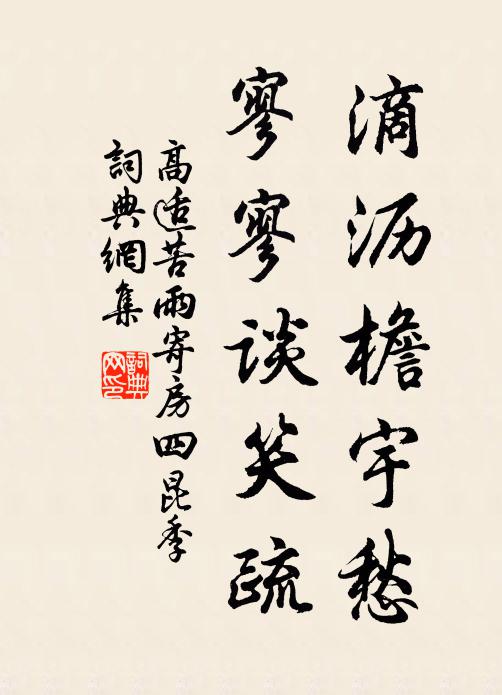 滴沥檐宇愁
寥寥谈笑疏
高适苦雨寄房四昆季
詞典網集
詞典网印